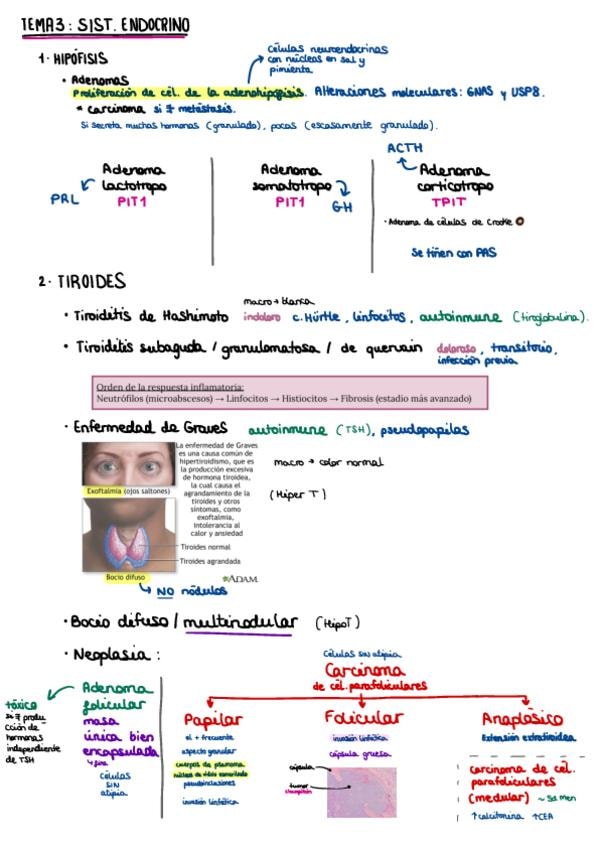 TEMA 3: SIST. ENDOCRINO
1. HIPÓFISIS
células neuroendocrinas
con núcleos en sal y
pimienta
• Adenomas
Proliferación de cél. de la adenohipófisis. Alteraciones moleculares: GNAS y USP8.
* carcinoma si ∃ metástasis.
Si secreta muchas hormonas (granulado), pocas (escasamente granulado).
Adenoma
lactotropo
PRL
PIT1
Adenoma
somatotropo
PIT1
GH
ACTH
Adenoma
corticotropo
TPIT
• Adenoma de células de Crooke
Se tiñen con PAS
2. TIROIDES
macro → blanca
• Tiroiditis de Hashimoto indoloro c. Hürtle, linfocitos, autoinmune (tiroglobulina).
• Tiroiditis subaguda / granulomatosa / de quervain doloroso, transitorio,
infección previa
Orden de la respuesta inflamatoria:
Neutrófilos (microabscesos) → Linfocitos → Histiocitos → Fibrosis (estadio más avanzado)
• Enfermedad de Graves autoinmune (TSH), pseudopapilas
La enfermedad de Graves
es una causa común de
hipertiroidismo, que es
la producción excesiva
de hormona tiroidea,
la cual causa el
agrandamiento de la
tiroides y otros
síntomas, como
exoftalmia,
intolerancia al
calor y ansiedad
Exoftalmia (ojos saltones)
Tiroides normal
Tiroides agrandada
Bocio difuso
ADAM
macro → color normal
(Hiper T)
NO nódulos
• Bocio difuso / multinodular (HipoT)
• Neoplasia:
tóxico
si ∃ produ
cción de
hormonas
independiente
de TSH
Adenoma
folicular
masa
única bien
encapsulada
↳ fina
células
SIN
atipia
células sin atipia
Carcinoma
de cél. parafoliculares
Papilar
el + frecuente
aspecto granular
cuerpos de psamoma
núcleos de vidrio esmerilado
pseudoinclusiones
invasión linfática
Folicular
invasión linfática
cápsula gruesa
cápsula
tumor
Anaplásico
Extensión extratiroidea
carcinoma de cél.
parafoliculares
(medular) ~ Sd men
↑ calcitonina ↑CEA